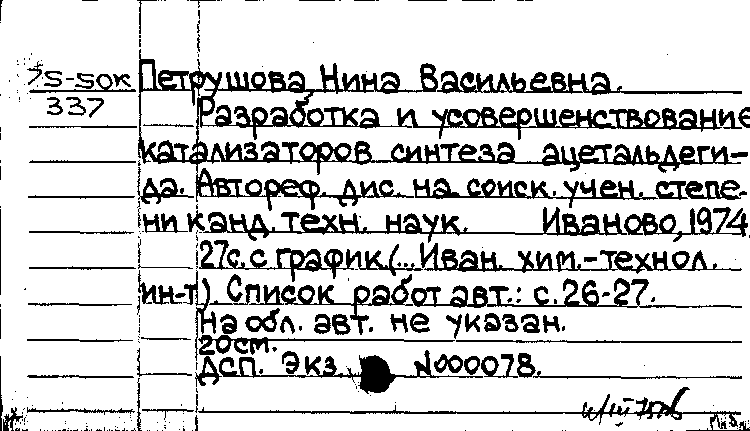 75-50к Петрушова, Нина Васильевна.
337 Разработка и усовершенствование
катализаторов синтеза ацетальдеги-
да. Автореф. дис. на соиск. учен. степе-
ни канд. техн. наук. Иваново, 1974
27с. с график. (... Иван. хим.-технол.
ин-т). Список работ авт.: с. 26-27.
На обл. авт. не указан.
20см.
ДСП. Экз. N000078.